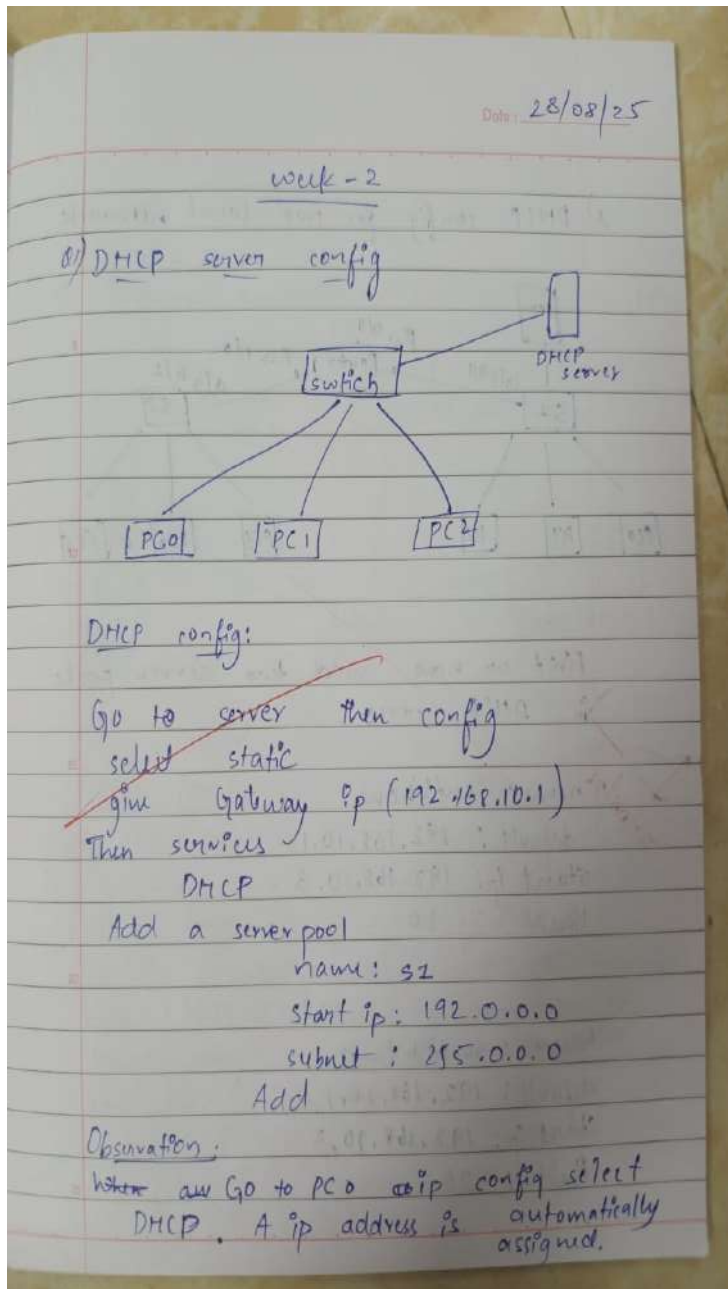 Date: 28/08/25
week-2
Q1) DHCP server config
DHCP
server
swtich
PC0
PC1
PC2
DHCP config:
Go to server then config
select static
give Gateway ip (192.168.10.1)
Then services
DHCP
Add a server pool
name: s1
start ip: 192.0.0.0
subnet: 255.0.0.0
Add
Observation:
Go to PC0 ip config select
DHCP. A ip address is automatically
assigned.